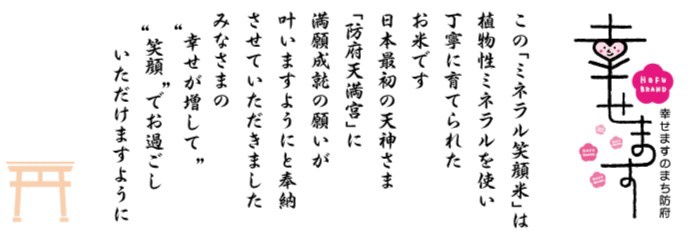 幸せます
HOFU
BRAND
幸せますのまち防府
この「ミネラル笑顔米」は
植物性ミネラルを使い
丁寧に育てられた
お米です
日本最初の天神さま
「防府天満宮」に
満願成就の願いが
叶いますようにと奉納
させていただきました
みなさまの
“幸せが増して”
“笑顔”でお過ごし
いただけますように